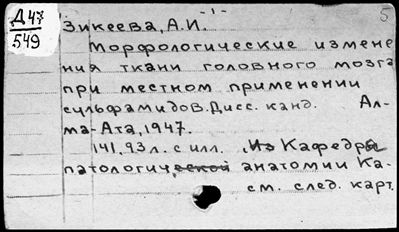 Д47
549
-1-
5
Зикеева, А.И.
Морфологические измене
ния ткани головного мозга
при местном применении
сульфамидов. Дисс. канд. Ал-
ма-Ата, 1947.
141,93л. с илл. Из Кафедра
патологической анатомии Ка-
см. след. карт.